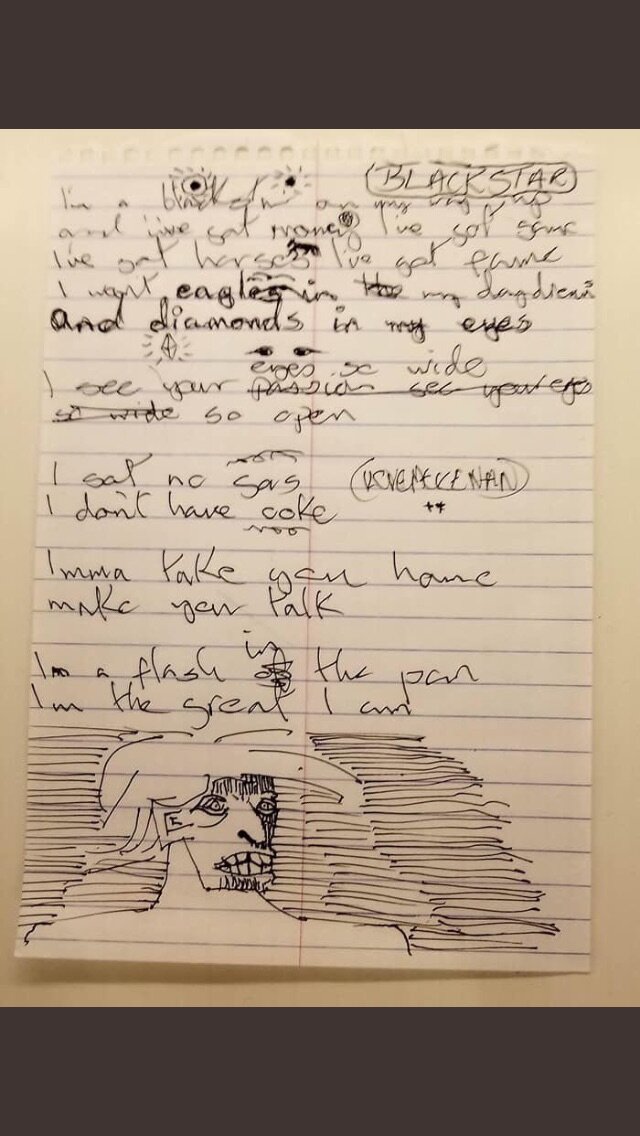 BLACKSTAR
I'm a on my way up
and i've got money I've got game
I've got horses I've got fame
I want eagles in the my daydreams
and diamonds in my eyes
eyes so wide
I see your passion see your eyes
so wide so open
I got no gas
I don't have coke
Imma take you home
make you talk
in
I'm a flash of the pan
I'm the great I am